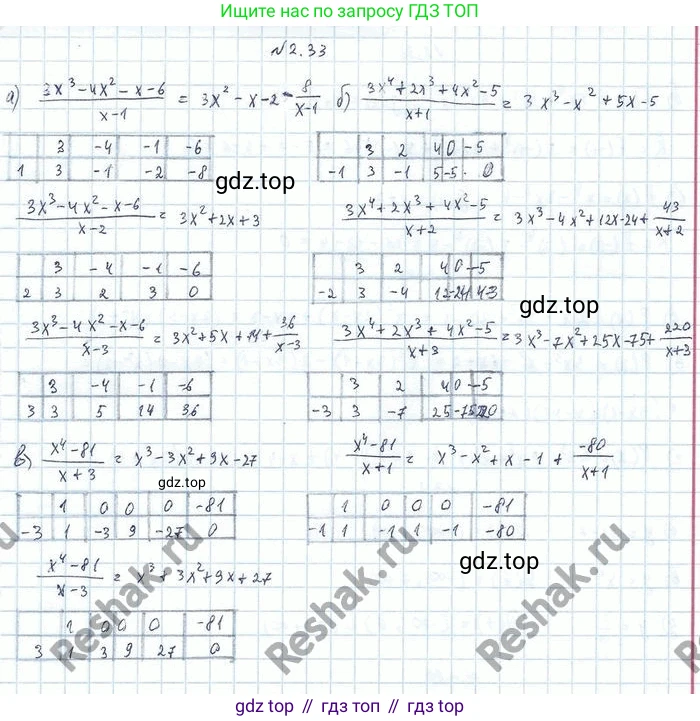 Ищите нас по запросу ГДЗ ТОП
№2.33
а) (3x³-4x²-x-6)/(x-1) = 3x²-x-2-8/(x-1) б) (3x⁴+2x³+4x²-5)/(x+1) = 3x³-x²+5x-5
3 -4 -1 -6
1 3 -1 -2 -8
3 2 4 0 -5
-1 3 -1 5 -5 0
gdz.top
(3x³-4x²-x-6)/(x-2) = 3x²+2x+3 (3x⁴+2x³+4x²-5)/(x+2) = 3x³-4x²+12x-24+43/(x+2)
3 -4 -1 -6
2 3 2 3 0
3 2 4 0 -5
-2 3 -4 12 -24 43
gdz.top
(3x³-4x²-x-6)/(x-3) = 3x²+5x+14+36/(x-3) (3x⁴+2x³+4x²-5)/(x+3) = 3x³-7x²+25x-75+220/(x+3)
3 -4 -1 -6
3 3 5 14 36
3 2 4 0 -5
-3 3 -7 25 -75 220
в) (x⁴-81)/(x+3) = x³-3x²+9x-27 (x⁴-81)/(x+1) = x³-x²+x-1+(-80)/(x+1)
1 0 0 0 -81
-3 1 -3 9 -27 0
1 0 0 0 -81
-1 1 -1 1 -1 -80
gdz.top
gdz.top
(x⁴-81)/(x-3) = x³+3x²+9x+27
1 0 0 0 -81
3 1 3 9 27 0
Reshak.ru
Reshak.ru
gdz.top // гдз.топ // gdz.top // гдз.топ